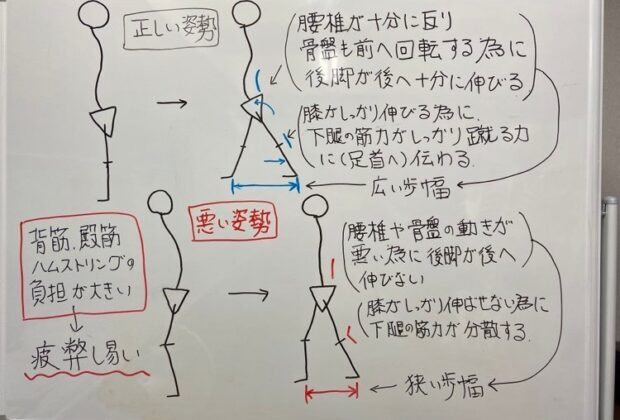 正しい姿勢
腰椎が十分に反り
骨盤も前へ回転する為に
後脚が後へ十分に伸びる
膝がしっかり伸びる為に、
下腿の筋力がしっかり蹴る力
に(足首へ)伝わる。
広い歩幅
悪い姿勢
背筋、殿筋
ハムストリングの
負担が大きい
疲弊し易い
腰椎や骨盤の動きが
悪い為に後脚が後へ
伸びない
膝がしっかり伸ばせない為に
下腿の筋力が分散する。
狭い歩幅